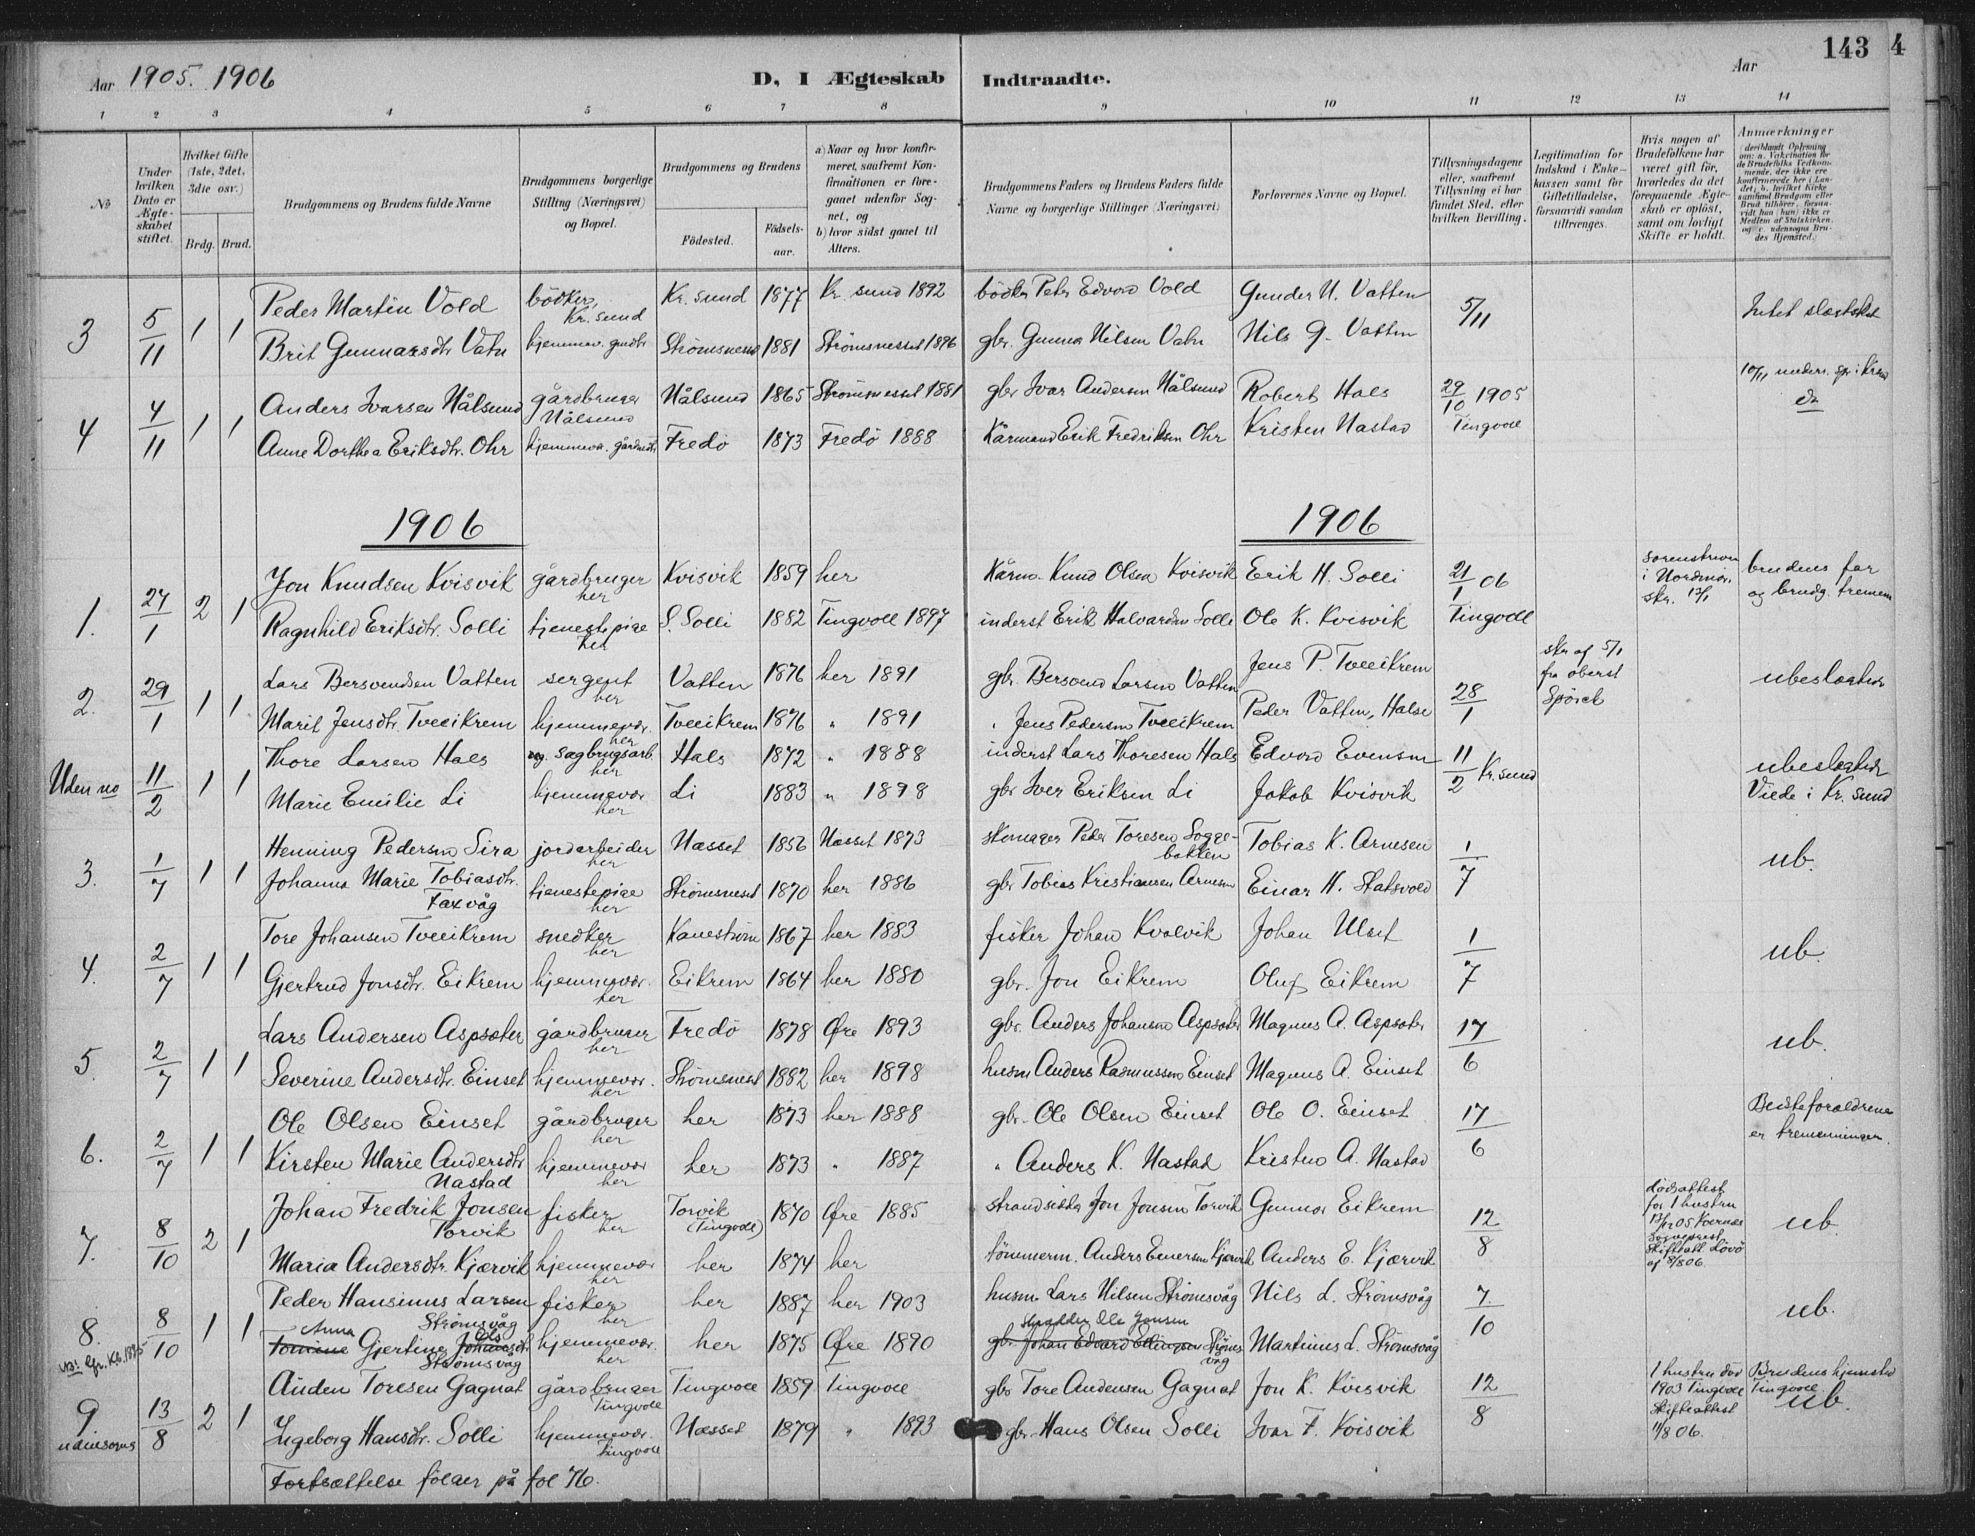 143 4
Aar 1905. 1906 D, I Ægteskab Indtraadte. Aar
1 2 3 4 5 6 7 8 9 10 11 12 13 14
No
Under hvilken Dato er Ægteskabet stiftet.
Hvilket Gifte (1ste, 2det, 3die osv.)
Brdg. Brud.
Brudgommens og Brudens fulde Navne
Brudgommens borgerlige Stilling (Næringsvei) og Bopæl.
Brudgommens og Brudens
Fødested.
Fødselsaar.
a) Naar og hvor konfirmeret, saafremt Konfirmationen er foregaaet udenfor Sognet, og
b) hvor sidst gaaet til Alters.
Brudgommens Faders og Brudens Faders fulde Navne og borgerlige Stillinger (Næringsvei)
Forlovernes Navne og Bopæl.
Tillysningsdagene eller, saafremt Tillysning ei har fundet Sted, efter hvilken Bevilling.
Legitimation for Indskud i Enkekassen samt for Giftetilladelse, forsaavidt saadan tiltrænges.
Hvis nogen af Brudefolkene har været gift før, hvorledes da det foregaaende Ægteskab er opløst, samt om lovligt Skifte er holdt.
Anmærkninger
3 5/11 1 1 Peder Martin Vold bødker, Kr. sund Kr. sund 1877 Kr. sund 1892 bødker Peter Edvard Vold Gunder N. Vatten 5/11 Intet slægtskab
Brit Gunnarsdtr. Vatn hjemmev. Strømsneset 1881 Strømsnesset 1896 gbr. Gunnar Nilsen Vatn Nils G. Vatten
4 4/11 1 1 Anders Ivarsen Nålsund gårdbruger Nålsund Nålsund 1865 Strømsnesset 1881 gbr Ivar Andersen Nålsund Robert Hals 29/10 1905 Tingvoll
Anne Dorthea Eriksdtr. Ohr hjemmev. Fredø 1873 Fredø 1888 Kårmand Erik Fredriksen Ohr Kristen Nastad
1906 1906
1. 27/1 2 1 Jon Knudsen Kvisvik gårdbruger her Kvisvik 1859 her Kårm. Knud Olsen Kvisvik Erik H. Solli 21/1 06 Tingvoll sorenskriver i Nordmør. skr. 13/1 brudens far og brudg. tremen
Ragnhild Eriksdtr. Solli tjenestepige her S. Solli 1882 Tingvoll 1897 inderst Erik Halvardsen Solli Ole K. Kvisvik
2. 29/1 1 1 Lars Bersvendsen Vatten sergent her Vatten 1876 her 1891 gbr. Bersvend Larsen Vatten Jens P. Tveeikrem 28/1 skr af 5/1 fra oberst Spörck ubeslægtede
Marit Jensdtr. Tveeikrem hjemmevær. her Tveeikrem 1876 " 1891 " Jens Pedersen Tveeikrem Peder Vatten, Halse
Uden no 11/2 1 1 Thore Larsen Hals sagbrugsarb. her Hals 1872 " 1888 inderst Lars Thoresen Hals Edvard Evensen 11/2 Kr. sund ubeslægtede Viede i Kr. sund
Marie Emilie Li hjemmevær her Li 1883 " 1898 gbr Iver Eriksen Li Jakob Kvisvik
3. 1/7 1 1 Henning Pedersen Sira jordarbeider her Næsset 1856 Næsset 1873 skomager Peder Toresen Soggebakken Tobias K. Arnesen 1/7 ub.
Johanna Marie Tobiasdtr. Faxvåg tjenestepige her Strømsneset 1870 her 1886 gbr Tobias Kristiansen Arnesen Einar H. Statsvold
4. 2/7 1 1 Tore Johansen Tveeikrem snedker her Kanestrøm 1867 her 1883 fisker Johan Kvalvik Johan Ulset 1/7 ub.
Gjertrud Jonsdtr. Eikrem hjemmevær. her Eikrem 1864 her 1880 gbr. Jon Eikrem Oluf Eikrem
5. 2/7 1 1 Lars Andersen Aspsæter gårdbruger her Fredø 1878 Øre 1893 gbr. Anders Johansen Aspsæter Magnus A. Aspsæter 17/6 ub.
Severine Andersdtr. Einset hjemmevær. her Strømsneset 1882 her 1898 husm Anders Rasmussen Einset Magnus A. Einset
6. 2/7 1 1 Ole Olsen Einset gårdbruger her her 1873 her 1888 gbr. Ole Olsen Einset Ole O. Einset 17/6 Bedsteforældrene er tremenninger.
Kirsten Marie Andersdtr Nastad hjemmevær her her 1873 " 1887 " Anders K. Nastad Kristen A. Nastad
7. 8/10 2 1 Johan Fredrik Jonsen Torvik fisker her Torvik (Tingvoll) 1870 Øre 1885 strandsidder Jon Jonsen Torvik Gunnar Eikrem 12/8 Dødsattest for 1 hustru ub.
Maria Andersdtr. Kjærvik hjemmevær her her 1874 her tømmerm. Anders Einersen Kjærvik Anders E. Kjærvik
8. 8/10 1 1 Peder Hansinus Larsen Strømsvåg fisker her her 1887 her 1903 husm Lars Nilsen Strømsvåg Nils L. Strømsvåg 7/10 ub.
Anna Tomine Gjertine Johansdtr Ols Strømsvåg hjemmevær. her her 1875 Øre 1890 Ole Jonsen gbr Johan Edvard Ellingsen Strømsvåg Martinus L. Strømsvåg
9 udensogns 13/8 2 1 Auden Toresen Gagnat gårdbruger Tingvoll Tingvoll 1859 Tingvoll gbr Tore Audensen Gagnat Jon K. Kvisvik 12/8 1 hustru død 1903 Tingvoll Skifteattest 11/8 06. Brudens hjemsted Tingvoll ub.
Ingeborg Hansdtr. Solli hjemmevær. Tingvoll Næsset 1879 " 1893 gbr. Hans Olsen Solli Ivar F. Kvisvik
Fortsættelse følger på fol 76.